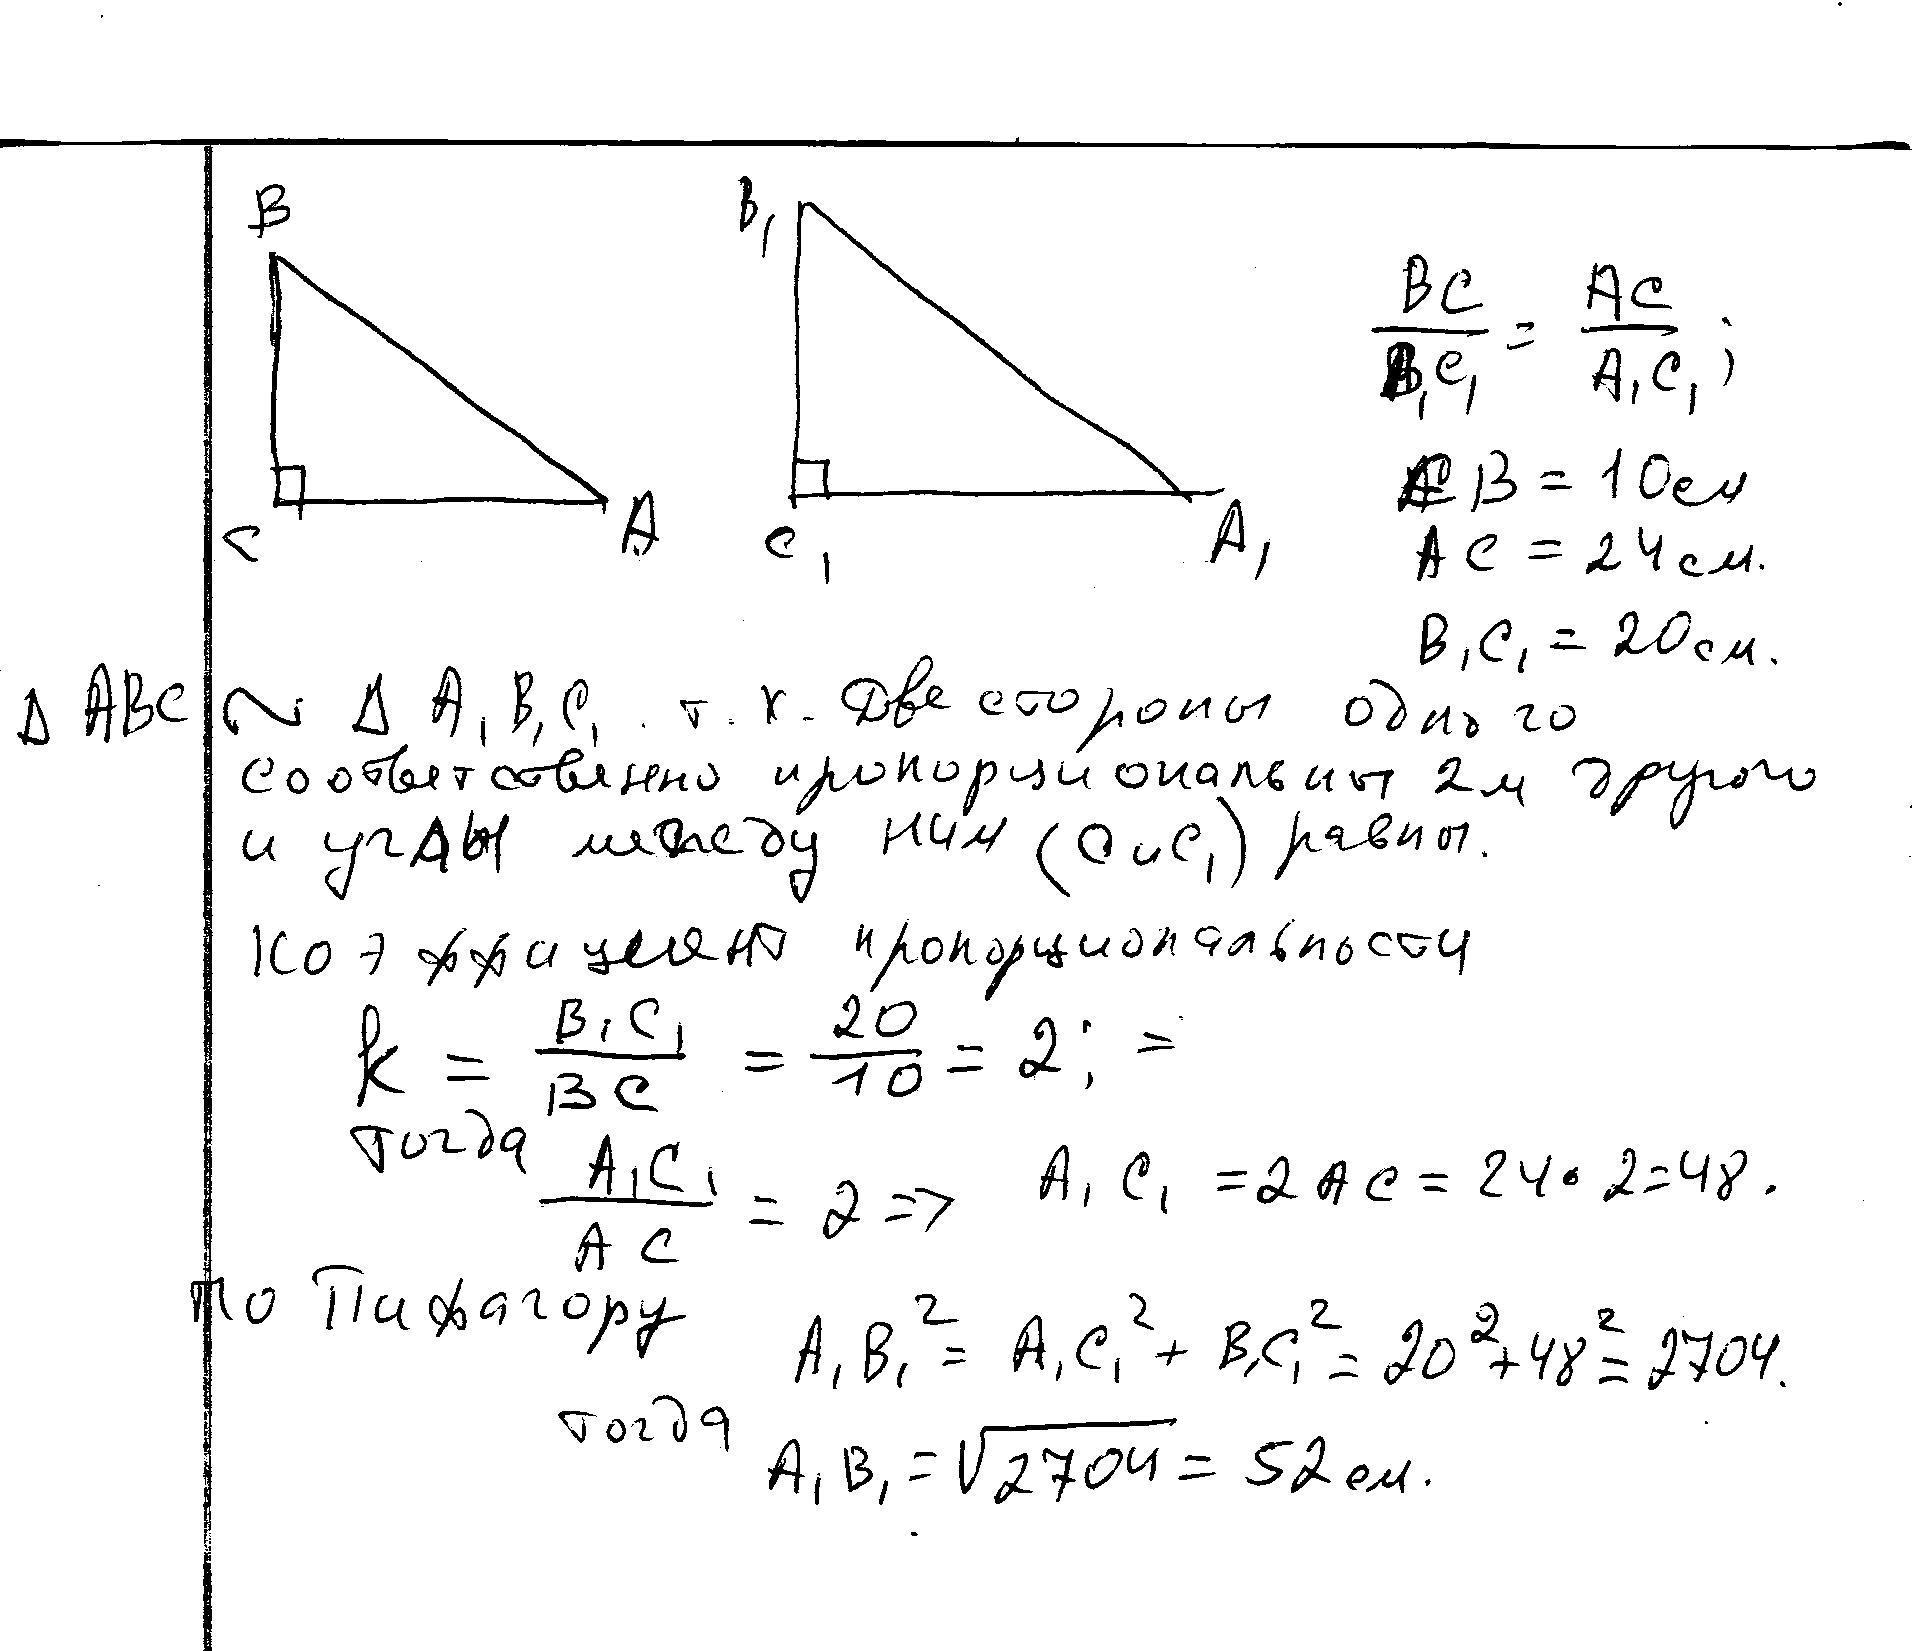 B
B₁
C
A
C₁
A₁
BC/B₁C₁ = AC/A₁C₁;
CB = 10см
AC = 24см.
B₁C₁ = 20см.
Δ ABC ~ Δ A₁B₁C₁. т.к. Две стороны одного
соответственно пропорциональны 2м другого
и углы между ним (C и C₁) равны.
Коэффициент пропорциональности
k = B₁C₁/BC = 20/10 = 2; =
тогда
A₁C₁/AC = 2 => A₁C₁ = 2AC = 24·2=48.
по Пифагору
A₁B₁² = A₁C₁² + B₁C₁² = 20²+48² = 2704.
тогда
A₁B₁ = √2704 = 52см.